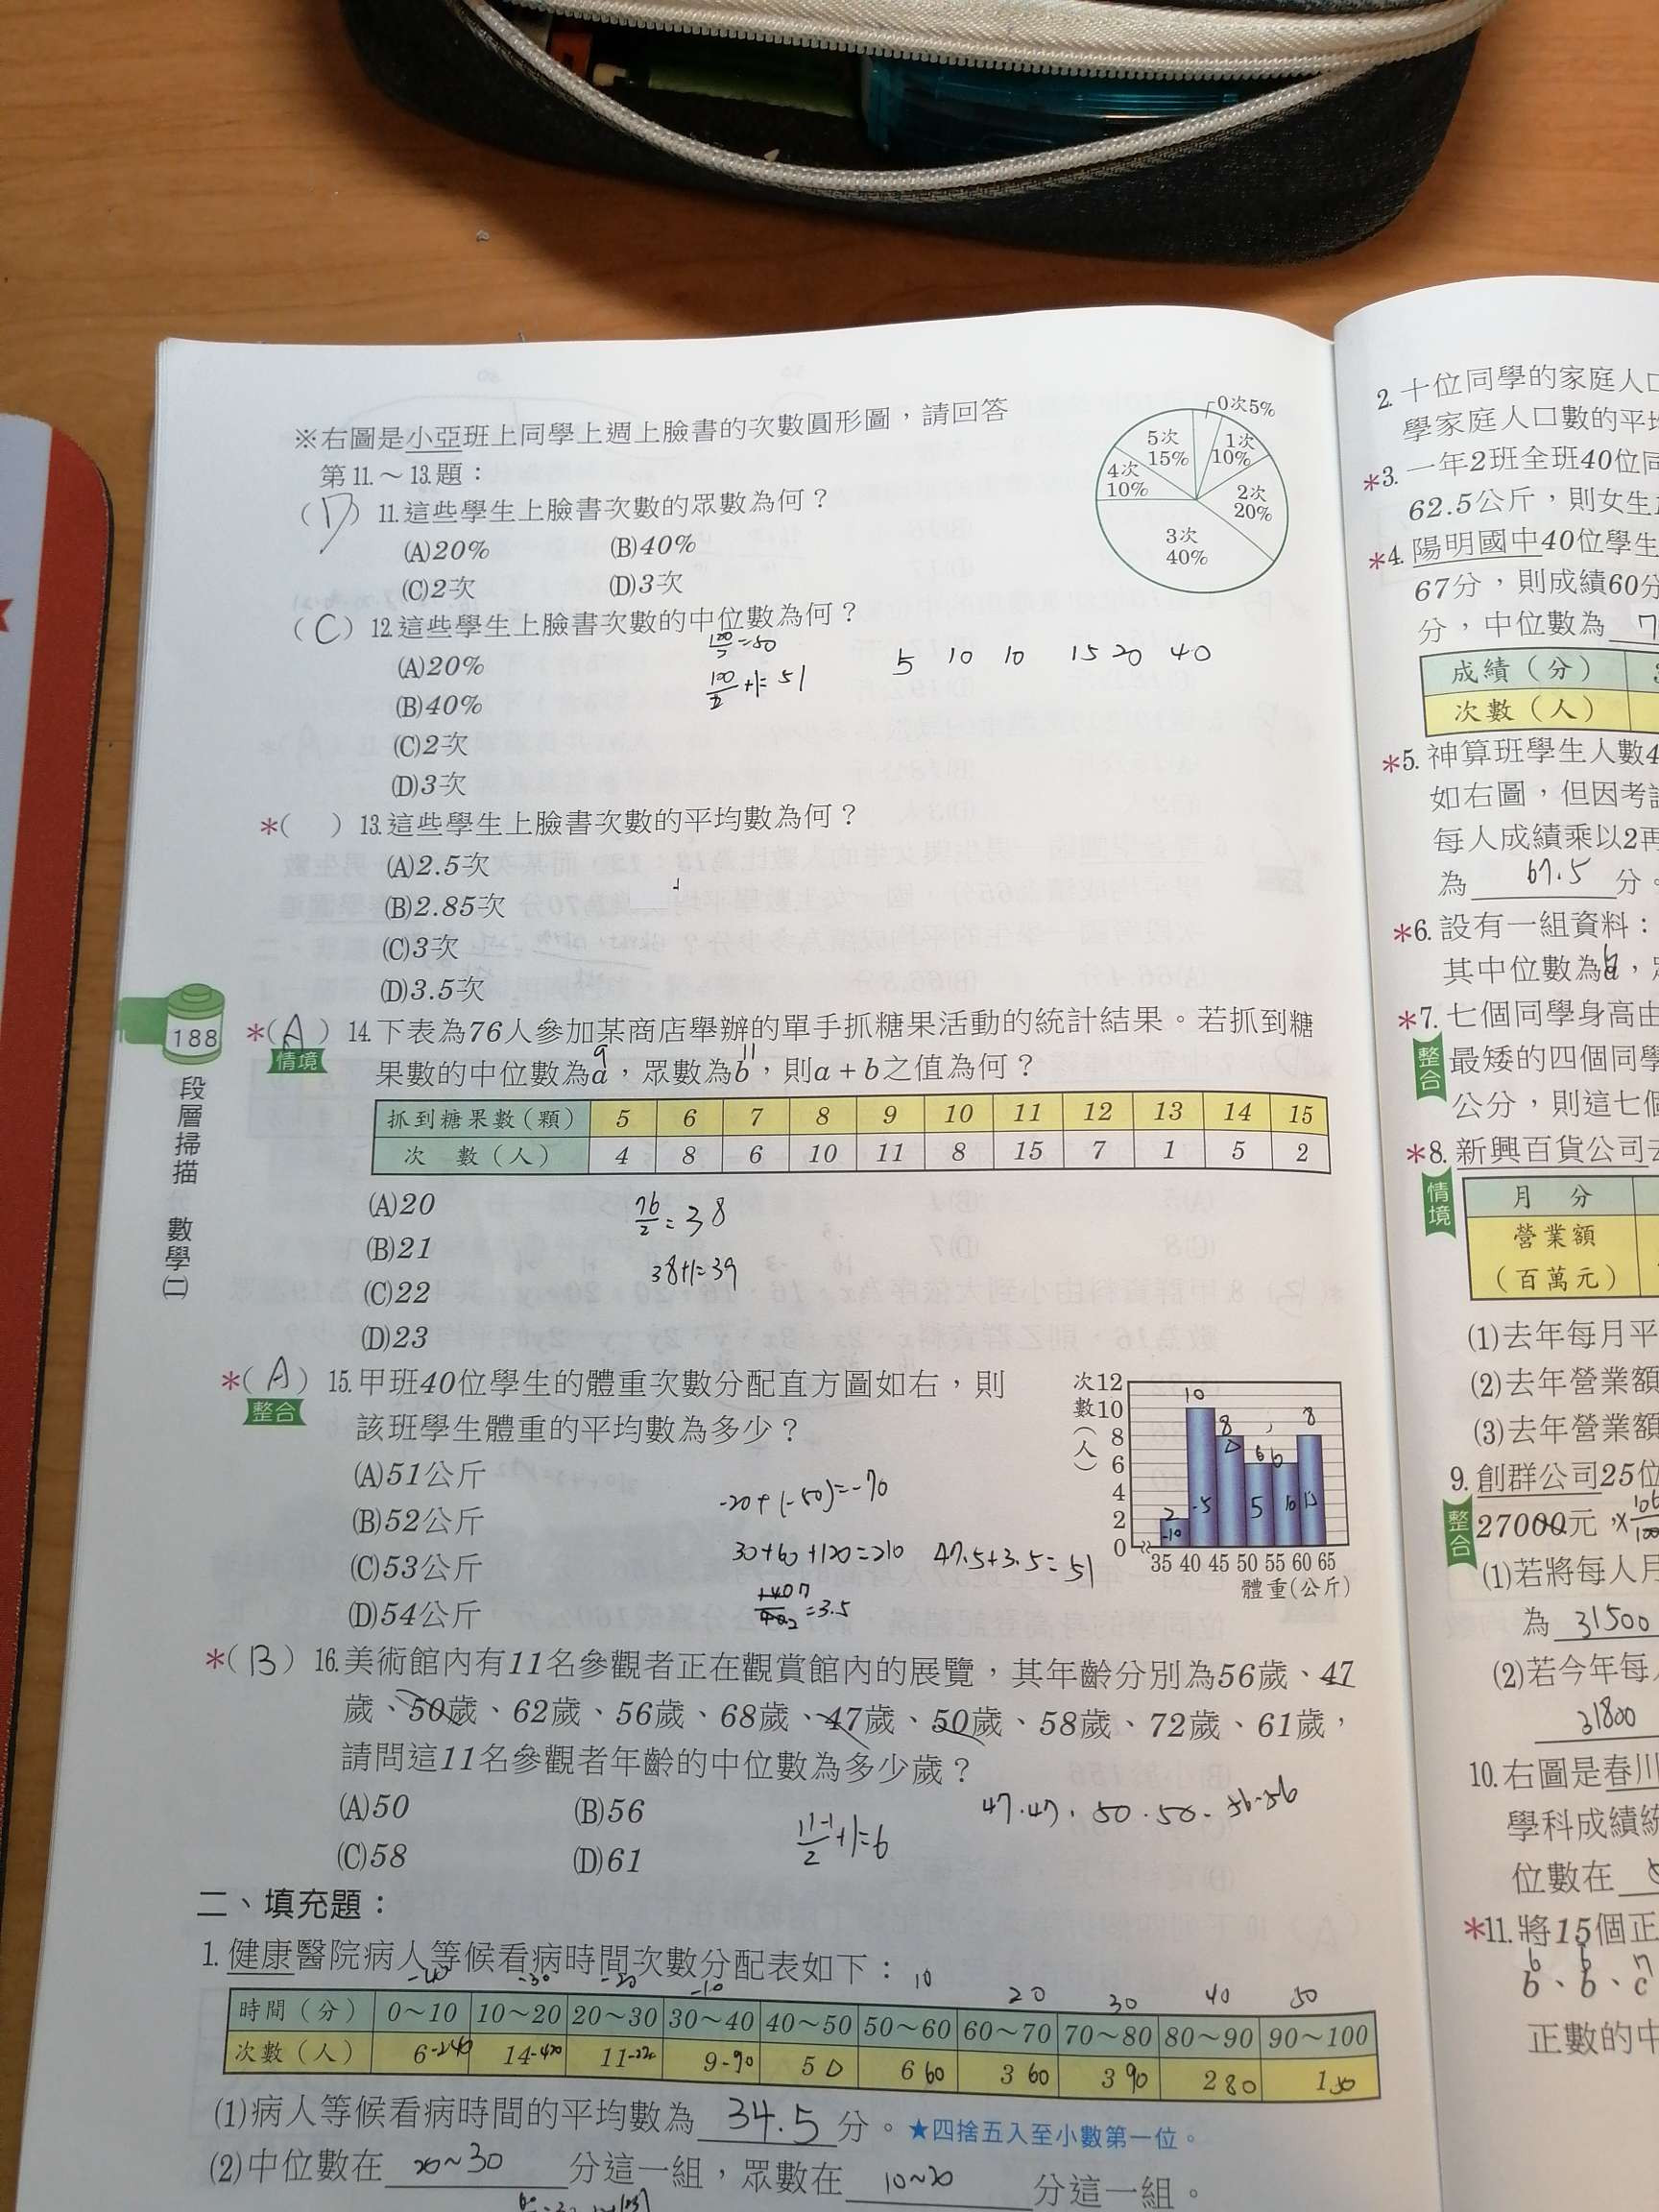 ※右圖是小亞班上同學上週上臉書的次數圓形圖，請回答
第11.～13.題：
0次5%
1次
10%
2次
20%
3次
40%
4次
10%
5次
15%
（D）11.這些學生上臉書次數的眾數為何？
(A)20% (B)40%
(C)2次 (D)3次
（C）12.這些學生上臉書次數的中位數為何？
(A)20%
(B)40%
(C)2次
(D)3次
100/2=50
100/2+1=51
5 10 10 15 20 40
*（ ）13.這些學生上臉書次數的平均數為何？
(A)2.5次
(B)2.85次
(C)3次
(D)3.5次
188
段層掃描 數學(二)
*（A）14.下表為76人參加某商店舉辦的單手抓糖果活動的統計結果。若抓到糖
情境
9 11
果數的中位數為a，眾數為b，則a+b之值為何？
抓到糖果數（顆） 5 6 7 8 9 10 11 12 13 14 15
次 數（人） 4 8 6 10 11 8 15 7 1 5 2
(A)20
(B)21
(C)22
(D)23
76/2=38
38+1=39
*（A）15.甲班40位學生的體重次數分配直方圖如右，則
整合
該班學生體重的平均數為多少？
(A)51公斤
(B)52公斤
(C)53公斤
(D)54公斤
-20+(-50)=-70
30+60+120=210
47.5+3.5=51
=3.5
次數（人）
12
10
8
6
4
2
0
35 40 45 50 55 60 65
體重(公斤)
2 10 8 6 6 8
-10 -5 0 5 10 15
*（B）16.美術館內有11名參觀者正在觀賞館內的展覽，其年齡分別為56歲、47
歲、50歲、62歲、56歲、68歲、47歲、50歲、58歲、72歲、61歲，
請問這11名參觀者年齡的中位數為多少歲？
(A)50 (B)56
(C)58 (D)61
11-1/2+1=6
47.47,50.50.56.56
二、填充題：
1.健康醫院病人等候看病時間次數分配表如下：
-40 -30 -20 -10 10 20 30 40 50
時間（分） 0～10 10～20 20～30 30～40 40～50 50～60 60～70 70～80 80～90 90～100
次數（人） 6 -240 14 -420 11 -220 9 -90 5 0 6 60 3 60 3 90 2 80 1 50
(1)病人等候看病時間的平均數為 34.5 分。★四捨五入至小數第一位。
(2)中位數在 20~30 分這一組，眾數在 10~20 分這一組。
2.十位同學的家庭人口
學家庭人口數的平均
*3.一年2班全班40位同
62.5公斤，則女生
*4.陽明國中40位學生
67分，則成績60分
分，中位數為
成績（分）
次數（人）
*5.神算班學生人數4
如右圖，但因考
每人成績乘以2再
為 67.5 分。
*6.設有一組資料：
其中位數為
*7.七個同學身高由
整合
最矮的四個同學
公分，則這七個
*8.新興百貨公司去
情境
月 分
營業額
（百萬元）
(1)去年每月平
(2)去年營業額
(3)去年營業額
9.創群公司25位
整合
27000元，
(1)若將每人月
為 31500
(2)若今年每人
31800
10.右圖是春川
學科成績統
位數在
*11.將15個正
6 6 7
b、b、c
正數的中